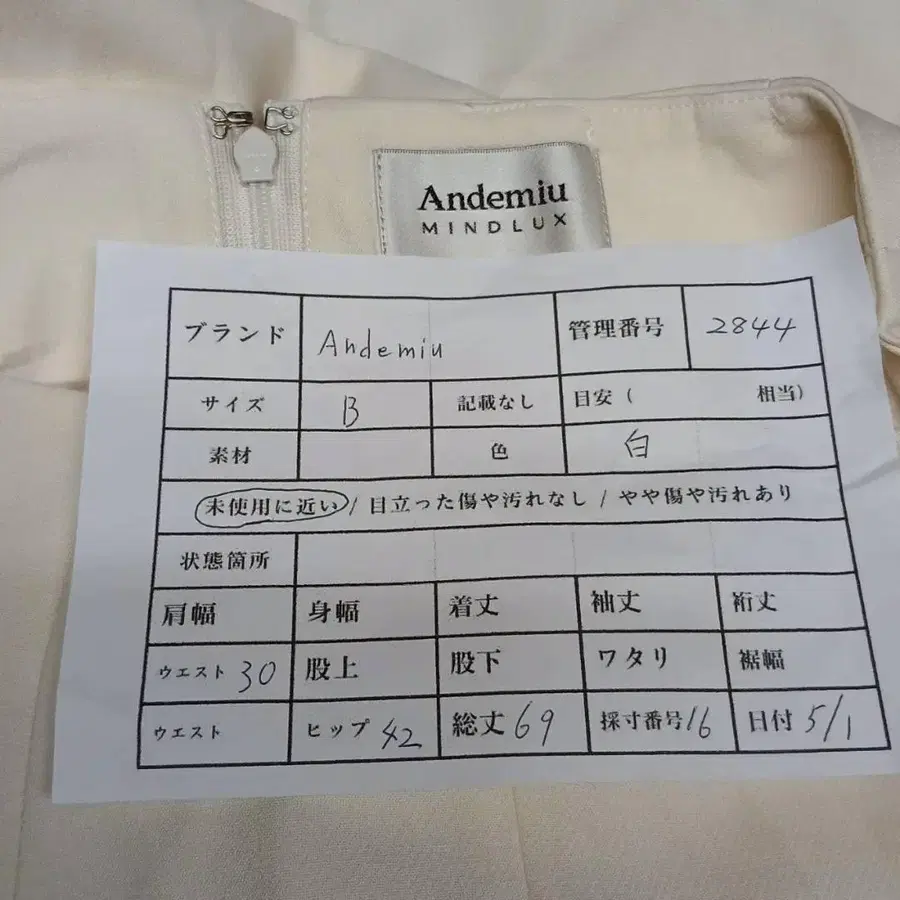 Andemiu
MINDLUX
ブランド Andemiu 管理番号 2844
サイズ B 記載なし 目安 ( 相当)
素材 色 白
未使用に近い / 目立った傷や汚れなし / やや傷や汚れあり
状態箇所
肩幅 身幅 着丈 袖丈 裄丈
ウエスト 30 股上 股下 ワタリ 裾幅
ウエスト ヒップ 42 総丈 69 採寸番号 16 日付 5/1